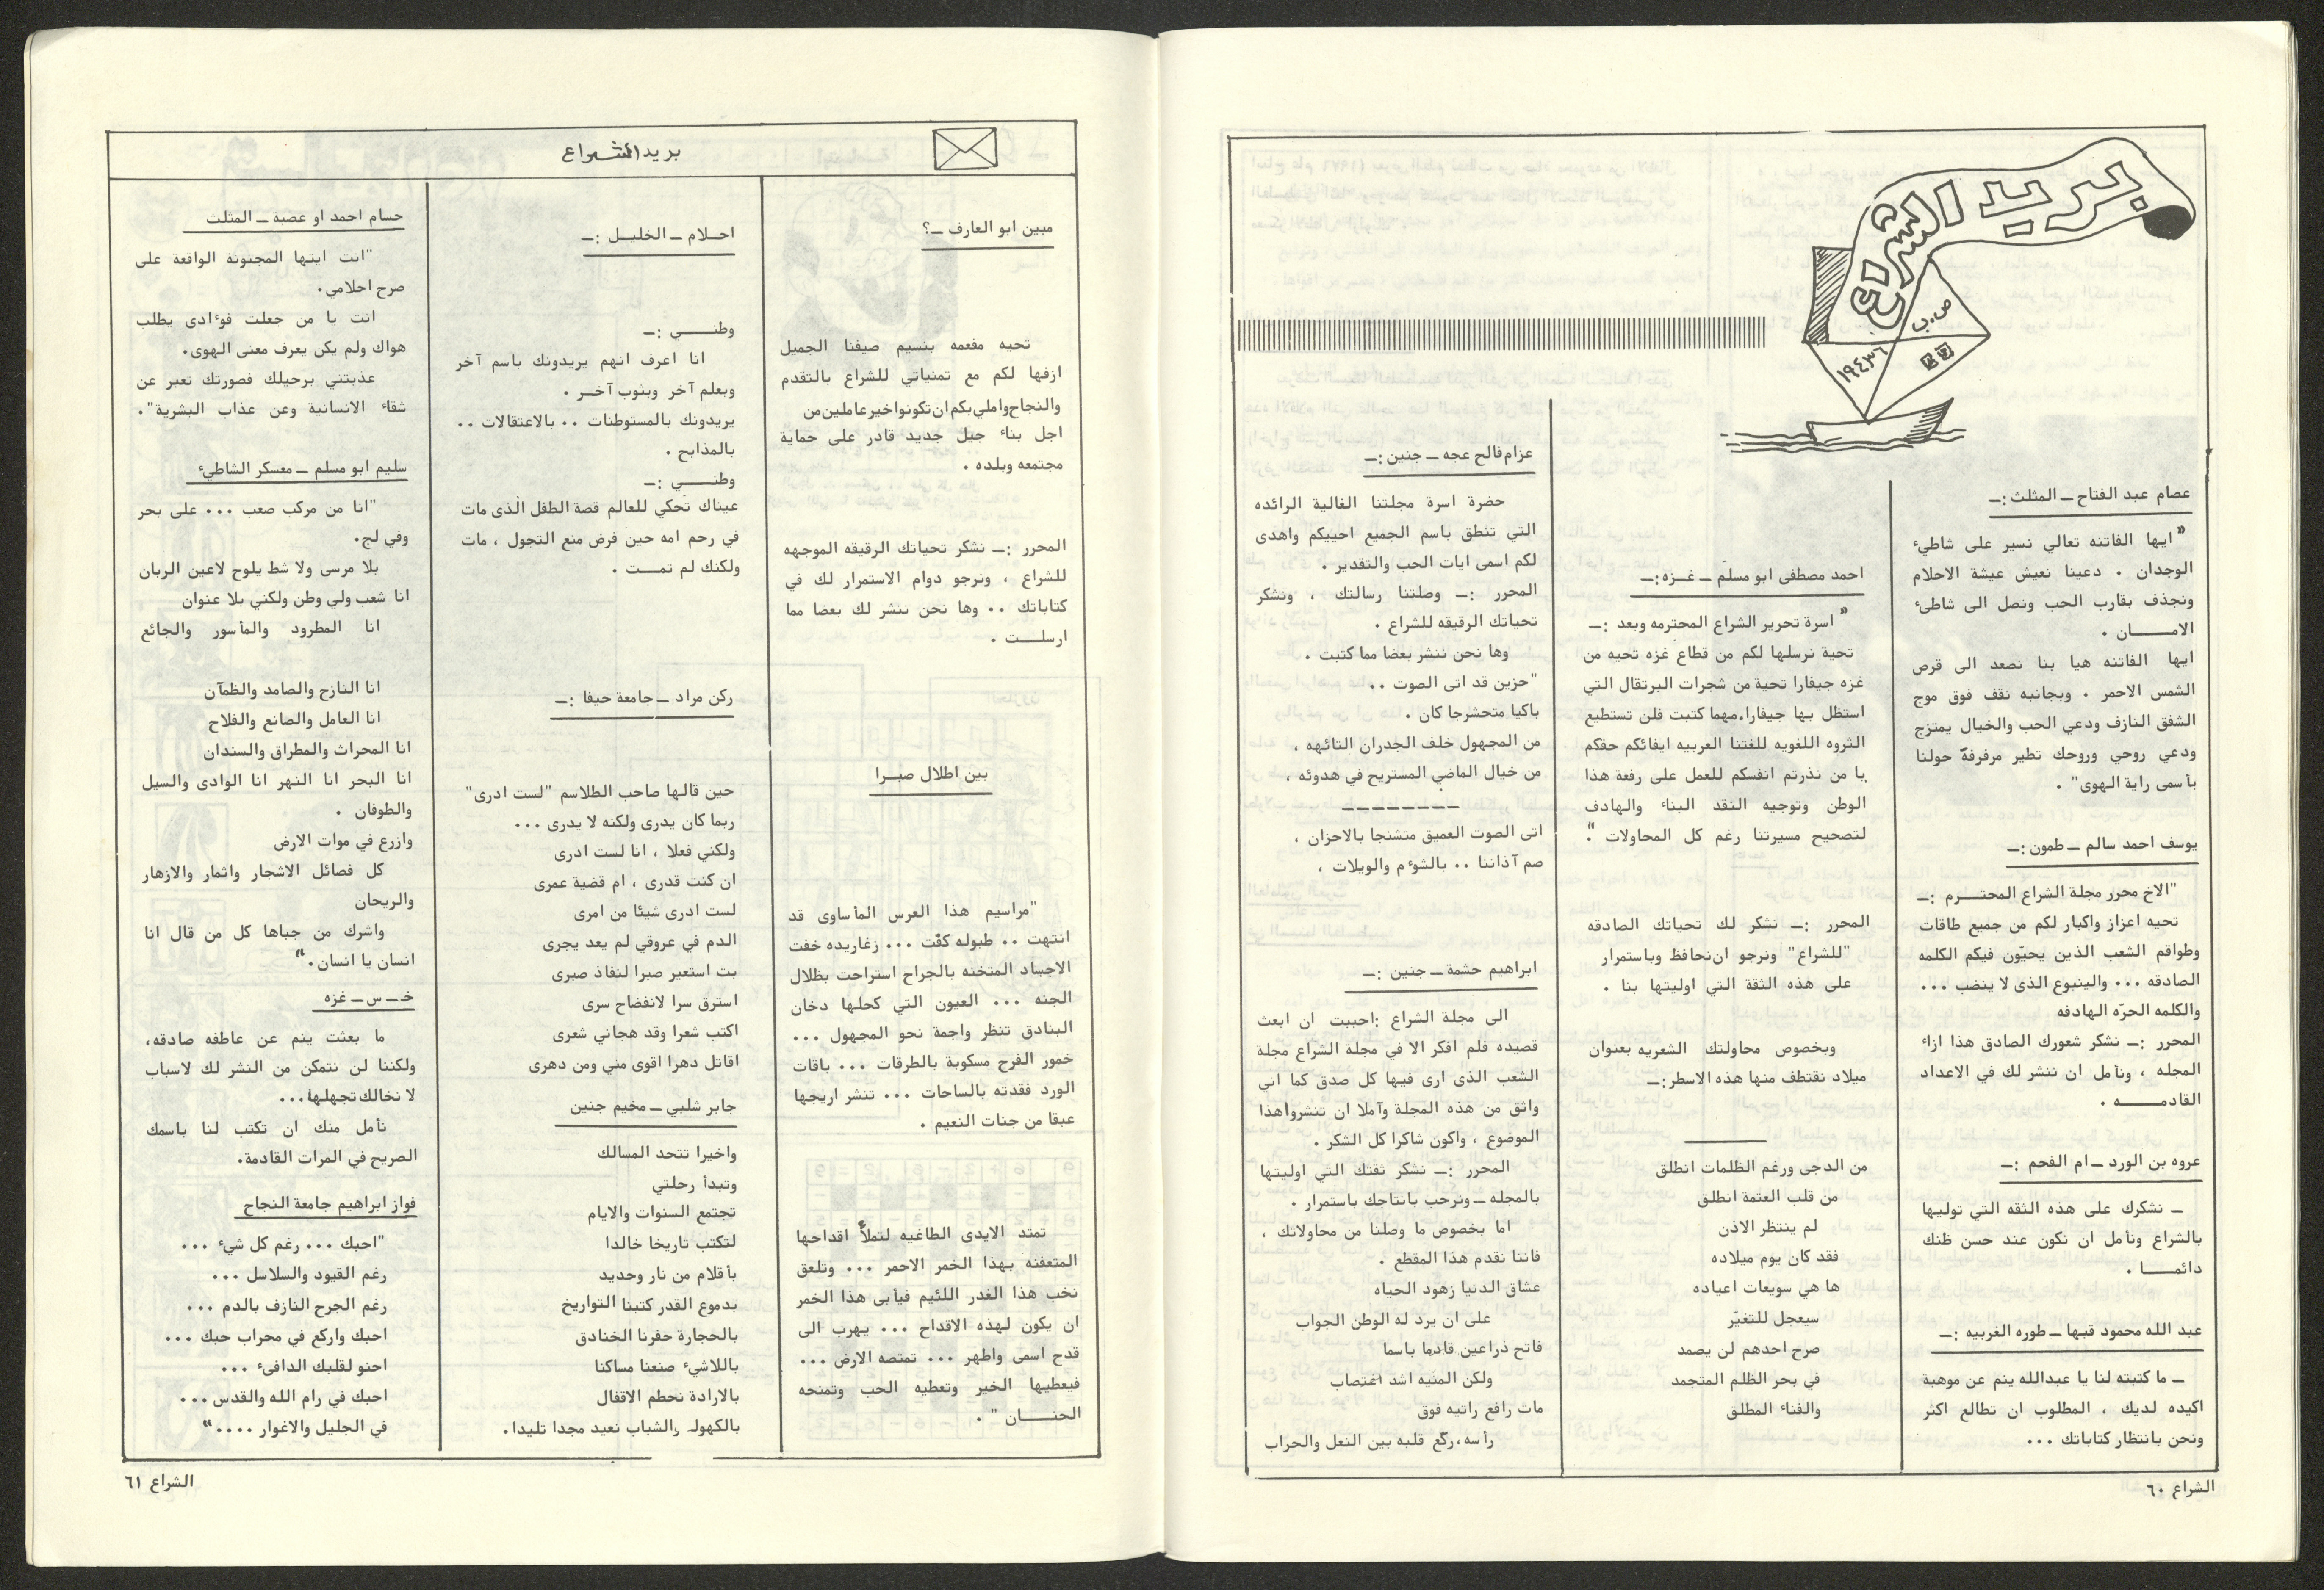 بريد الشراع
ص.ب
١٩٤٣٦
عصام عبد الفتاح ــ المثلث :ــ
"ايها الفاتنه تعالي نسير على شاطيء
الوجدان . دعينا نعيش عيشة الاحلام
ونجذف بقارب الحب ونصل الى شاطىء
الامــــان .
ايها الفاتنه هيا بنا نصعد الى قرص
الشمس الاحمر . وبجانبه نقف فوق موج
الشفق النازف ودعي الحب والخيال يمتزج
ودعي روحي وروحك تطير مرفرفة حولنا
بأسمى راية الهوى" .
يوسف احمد سالم ــ طمون :ــ
"الاخ محرر مجلة الشراع المحتــرم :ــ
تحيه اعزاز واكبار لكم من جميع طاقات
وطواقم الشعب الذين يحبّون فيكم الكلمه
الصادقه ... والينبوع الذى لا ينضب ...
والكلمه الحرّه الهادفه
المحرر :ــ نشكر شعورك الصادق هذا ازاء
المجله ، ونأمل ان ننشر لك في الاعداد
القادمـــــه .
عروه بن الورد ــ ام الفحم :ــ
ــ نشكرك على هذه الثقه التي توليها
بالشراع ونأمل ان نكون عند حسن ظنك
دائمـــا .
عبد الله محمود قبها ــ طوره الغربيه :ــ
ــ ما كتبته لنا يا عبدالله ينم عن موهبة
اكيده لديك ، المطلوب ان تطالع اكثر
ونحن بانتظار كتاباتك ...
احمد مصطفى ابو مسلم ــ غــزه :ــ
" اسرة تحرير الشراع المحترمه وبعد :ــ
تحية نرسلها لكم من قطاع غزه تحيه من
غزه جيفارا تحية من شجرات البرتقال التي
استظل بها جيفارا.مهما كتبت فلن تستطيع
الثروه اللغويه للغتنا العربيه ايفائكم حقكم
يا من نذرتم انفسكم للعمل على رفعة هذا
الوطن وتوجيه النقد البناء والهادف
لتصحيح مسيرتنا رغم كل المحاولات ".
المحرر :ــ نشكر لك تحياتك الصادقه
"للشراع" ونرجو ان نحافظ وباستمرار
على هذه الثقة التي اوليتها بنا .
وبخصوص محاولتك الشعريه بعنوان
ميلاد نقتطف منها هذه الاسطر:ــ
من الدجى ورغم الظلمات انطلق
من قلب العتمة انطلق
لم ينتظر الاذن
فقد كان يوم ميلاده
ها هي سويعات اعياده
سيعجل للتغيّر
صرح احدهم لن يصمد
في بحر الظلم المتجمد
والفناء المطلق
عزام فالح عجه ــ جنين :ــ
حضرة اسرة مجلتنا الغالية الرائده
التي تنطق باسم الجميع احييكم واهدى
لكم اسمى ايات الحب والتقدير .
المحرر :ــ وصلتنا رسالتك ، ونشكر
تحياتك الرقيقه للشراع .
وها نحن ننشر بعضا مما كتبت .
"حزين قد اتى الصوت ..
باكيا متحشرجا كان .
من المجهول خلف الجدران التائهه ،
من خيال الماضي المستريح في هدوئه ،
ــ ــ ــ ــ ــ ــ ــ ــ
اتى الصوت العميق متشنجا بالاحزان ،
صم آذاننا .. بالشوءم والويلات ،
ابراهيم حشمة ــ جنين :ــ
الى مجلة الشراع :احببت ان ابعث
قصيده فلم افكر الا في مجلة الشراع مجلة
الشعب الذى ارى فيها كل صدق كما اني
واثق من هذه المجلة وآملا ان تنشروا هذا
الموضوع ، واكون شاكرا كل الشكر .
المحرر :ــ نشكر ثقتك التي اوليتها
بالمجله ــ ونرحب بانتاجك باستمرار .
اما بخصوص ما وصلنا من محاولاتك ،
فاننا نقدم هذا المقطع .
عشاق الدنيا زهود الحياه
على ان يرد له الوطن الجواب
فاتح ذراعين قادما باسما
ولكن المنيه اشد اغتصاب
مات رافع راتيه فوق
رأسه،ركّع قلبه بين النعل والحراب
الشراع ٦٠
بريد الشراع
مبين ابو العارف ــ؟
تحيه مفعمه بنسيم صيفنا الجميل
ازفها لكم مع تمنياتي للشراع بالتقدم
والنجاح واملي بكم ان تكونوا خير عاملين من
اجل بناء جيل جديد قادر على حماية
مجتمعه وبلده .
المحرر :ــ نشكر تحياتك الرقيقه الموجهه
للشراع ، ونرجو دوام الاستمرار لك في
كتاباتك .. وها نحن ننشر لك بعضا مما
ارسلــت .
بين اطلال صبــرا
"مراسيم هذا العرس المأساوى قد
انتهت .. طبوله كفّت ... زغاريده خفت
الاجساد المتخنه بالجراح استراحت بظلال
الجنه ... العيون التي كحلها دخان
البنادق تنظر واجمة نحو المجهول ...
خمور الفرح مسكوبة بالطرقات ... باقات
الورد فقدته بالساحات ... تنشر اريجها
عبقا من جنات النعيم .
تمتد الايدى الطاغيه لتملأ اقداحها
المتعفنه بهذا الخمر الاحمر ... وتلعق
نخب هذا الغدر اللئيم فيأبى هذا الخمر
ان يكون لهذه الاقداح ... يهرب الى
قدح اسمى واطهر ... تمتصه الارض ...
فيعطيها الخير وتعطيه الحب وتمنحه
الحنــــان " .
احــلام ــ الخليــل :ــ
وطنـــي :ــ
انا اعرف انهم يريدونك باسم آخر
وبعلم آخر وبثوب آخــر .
يريدونك بالمستوطنات .. بالاعتقالات ..
بالمذابح .
وطنـــي :ــ
عيناك تحكي للعالم قصة الطفل الذى مات
في رحم امه حين فرض منع التجول ، مات
ولكنك لم تمـــت .
ركن مراد ــ جامعة حيفا :ــ
حين قالها صاحب الطلاسم "لست ادرى"
ربما كان يدرى ولكنه لا يدرى ...
ولكني فعلا ، انا لست ادرى
ان كنت قدرى ، ام قضية عمرى
لست ادرى شيئا من امرى
الدم في عروقي لم يعد يجرى
بت استعير صبرا لنفاذ صبرى
استرق سرا لانفضاح سرى
اكتب شعرا وقد هجاني شعرى
اقاتل دهرا اقوى مني ومن دهرى
جابر شلبي ــ مخيم جنين
واخيرا تتحد المسالك
وتبدأ رحلتي
تجتمع السنوات والايام
لتكتب تاريخا خالدا
بأقلام من نار وحديد
بدموع القدر كتبنا التواريخ
بالحجارة حفرنا الخنادق
باللاشيء صنعنا مساكنا
بالارادة نحطم الاقفال
بالكهول والشباب نعيد مجدا تليدا.
حسام احمد او عصبة ــ المثلث
"انت ايتها المجنونة الواقعة على
صرح احلامي.
انت يا من جعلت فوءادى يطلب
هواك ولم يكن يعرف معنى الهوى.
عذبتني برحيلك فصورتك تعبر عن
شقاء الانسانية وعن عذاب البشرية".
سليم ابو مسلم ــ معسكر الشاطيء
"انا من مركب صعب ... على بحر
وفي لج.
بلا مرسى ولا شط يلوح لاعين الربان
انا شعب ولي وطن ولكني بلا عنوان
انا المطرود والمأسور والجائع
انا النازح والصامد والظمآن
انا العامل والصانع والفلاح
انا المحراث والمطراق والسندان
انا البحر انا النهر انا الوادى والسيل
والطوفان .
وازرع في موات الارض
كل فصائل الاشجار واثمار والازهار
والريحان
واشرك من جباها كل من قال انا
انسان يا انسان."
خ ــ س ــ غزه
ما بعثت ينم عن عاطفه صادقه،
ولكننا لن نتمكن من النشر لك لاسباب
لا نخالك تجهلها...
نأمل منك ان تكتب لنا باسمك
الصريح في المرات القادمة.
فواز ابراهيم جامعة النجاح
"احبك ... رغم كل شيء ...
رغم القيود والسلاسل ...
رغم الجرح النازف بالدم ...
احبك واركع في محراب حبك ...
احنو لقلبك الدافىء ...
احبك في رام الله والقدس ...
في الجليل والاغوار ...."
الشراع ٦١